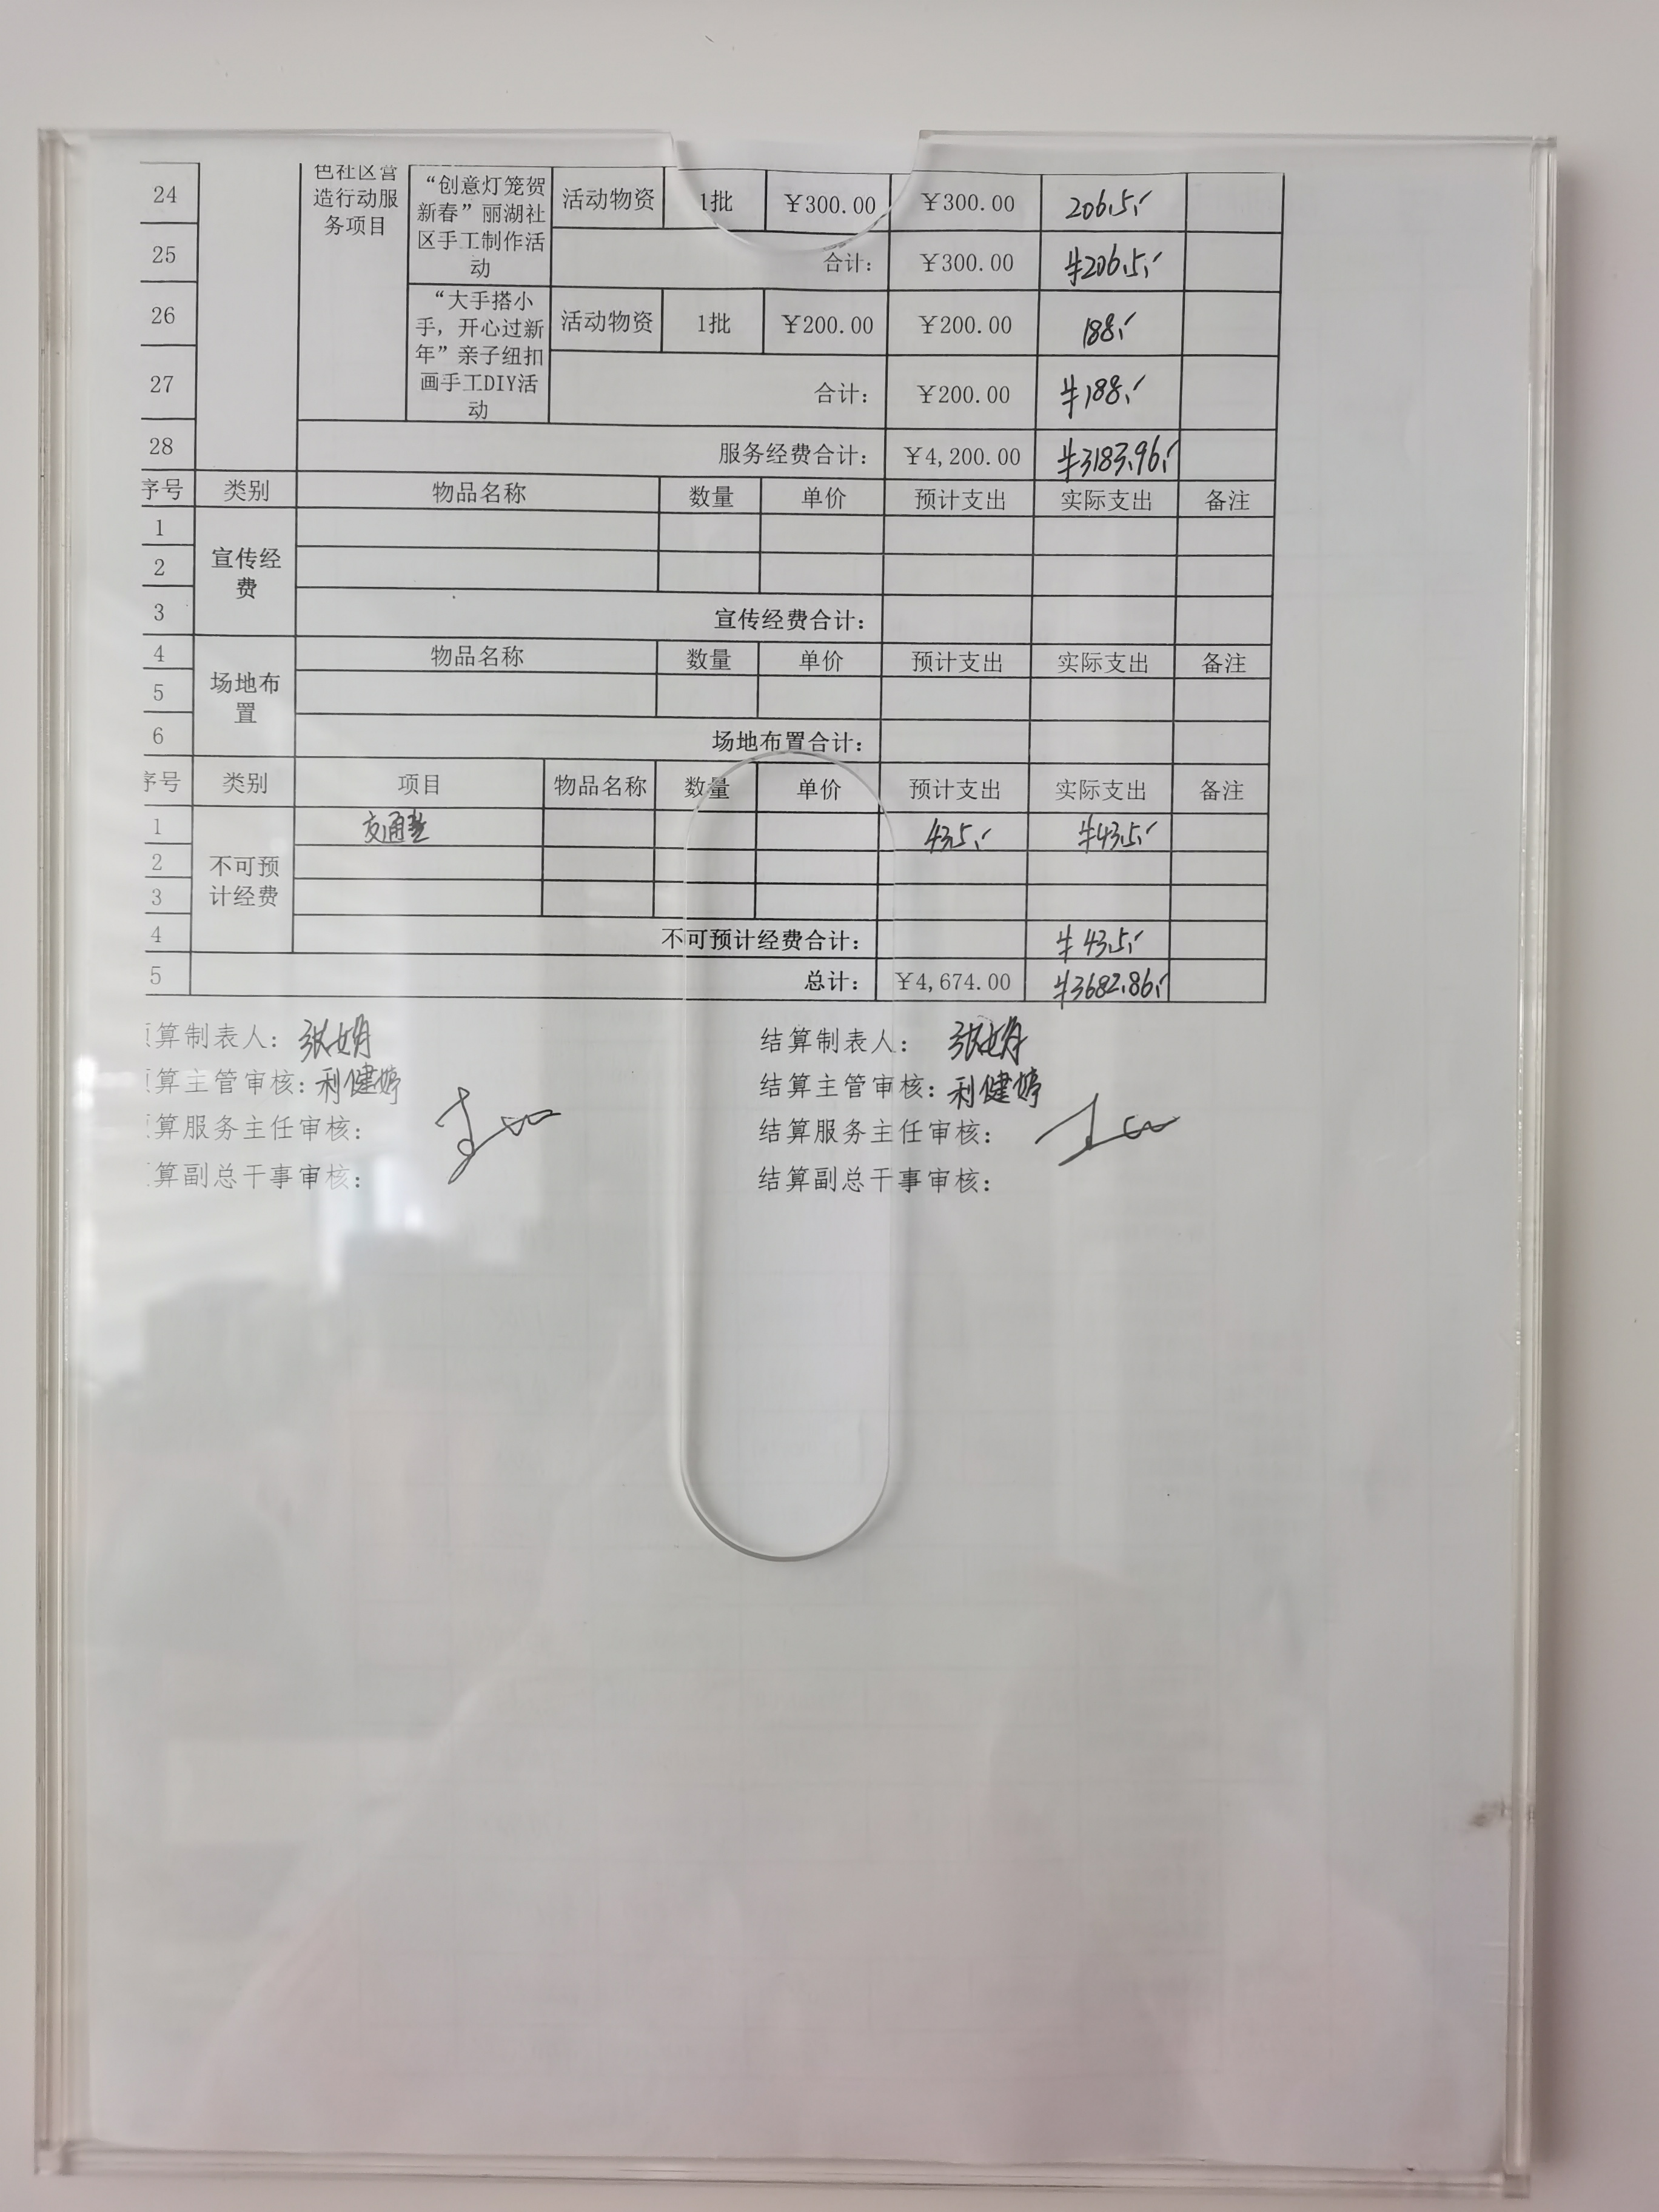 色社区营造行动服务项目
24 “创意灯笼贺新春”丽湖社区手工制作活动 活动物资 1批 ¥300.00 ¥300.00 206.5
25 合计： ¥300.00 ¥206.5
26 “大手搭小手，开心过新年”亲子纽扣画手工DIY活动 活动物资 1批 ¥200.00 ¥200.00 188
27 合计： ¥200.00 ¥188
28 服务经费合计： ¥4,200.00 ¥3183.96
序号 类别 物品名称 数量 单价 预计支出 实际支出 备注
1
宣传经费
2
3 宣传经费合计：
4 物品名称 数量 单价 预计支出 实际支出 备注
场地布置
5
6 场地布置合计：
序号 类别 项目 物品名称 数量 单价 预计支出 实际支出 备注
1 交通费 43.5 ¥43.5
不可预计经费
2
3
4 不可预计经费合计： ¥43.5
5 总计： ¥4,674.00 ¥3682.86
算制表人：张娟 结算制表人：张娟
算主管审核：利健婷 结算主管审核：利健婷
算服务主任审核： 结算服务主任审核：
算副总干事审核： 结算副总干事审核：